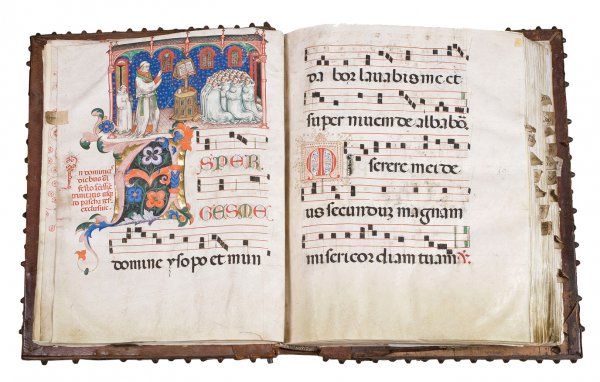 A
SPER
GES ME
domine ysopo et mun
In dominicis
diebus a
festo scilicet
trinitatis usque
pascha
exclusive.
da bor lavabis me. et
super nivem de albabo.
M
iserere mei de
us secundum magnam
misericordiam tuam. V.